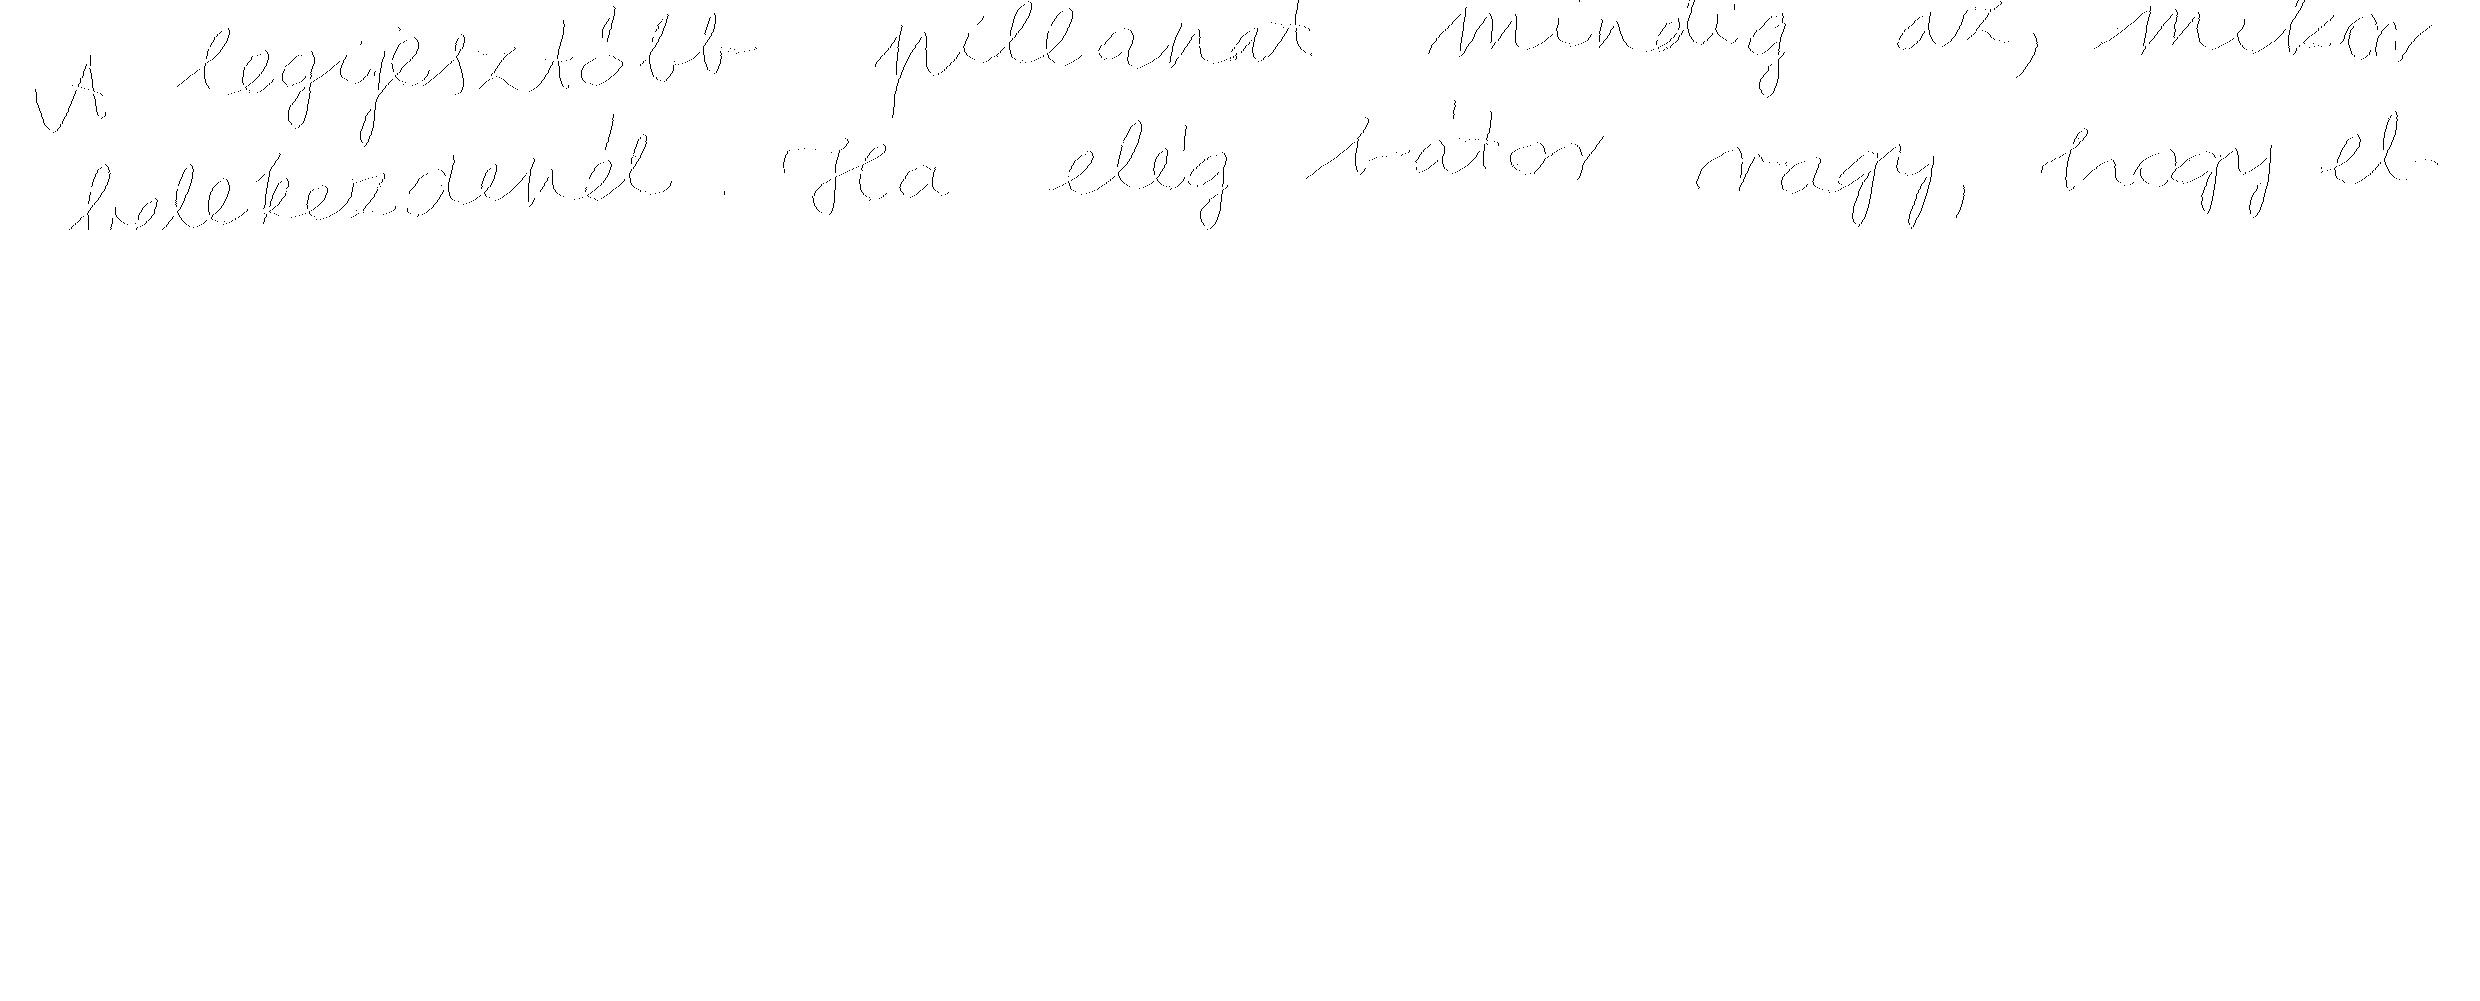 A legijesztőbb pillanat mindig az, mikor
belekezdenél. Ha elég bátor vagy, hogy el-